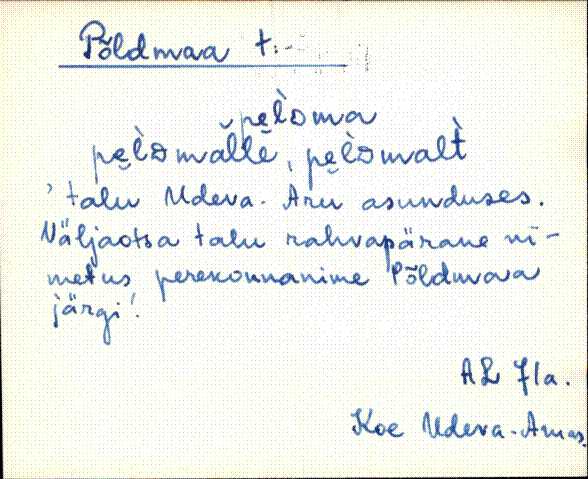 Põldmaa t.
pe̮l̀ᴅma
pe̮l̀ᴅmăllĕ, pe̮l̀ᴅmalt̀
'talu Udeva-Aru asunduses.
Väljaotsa talu rahvapärane ni-
metus perekonnanime Põldmaa
järgi'.
AL 71a.
Koe Udeva-Amas.